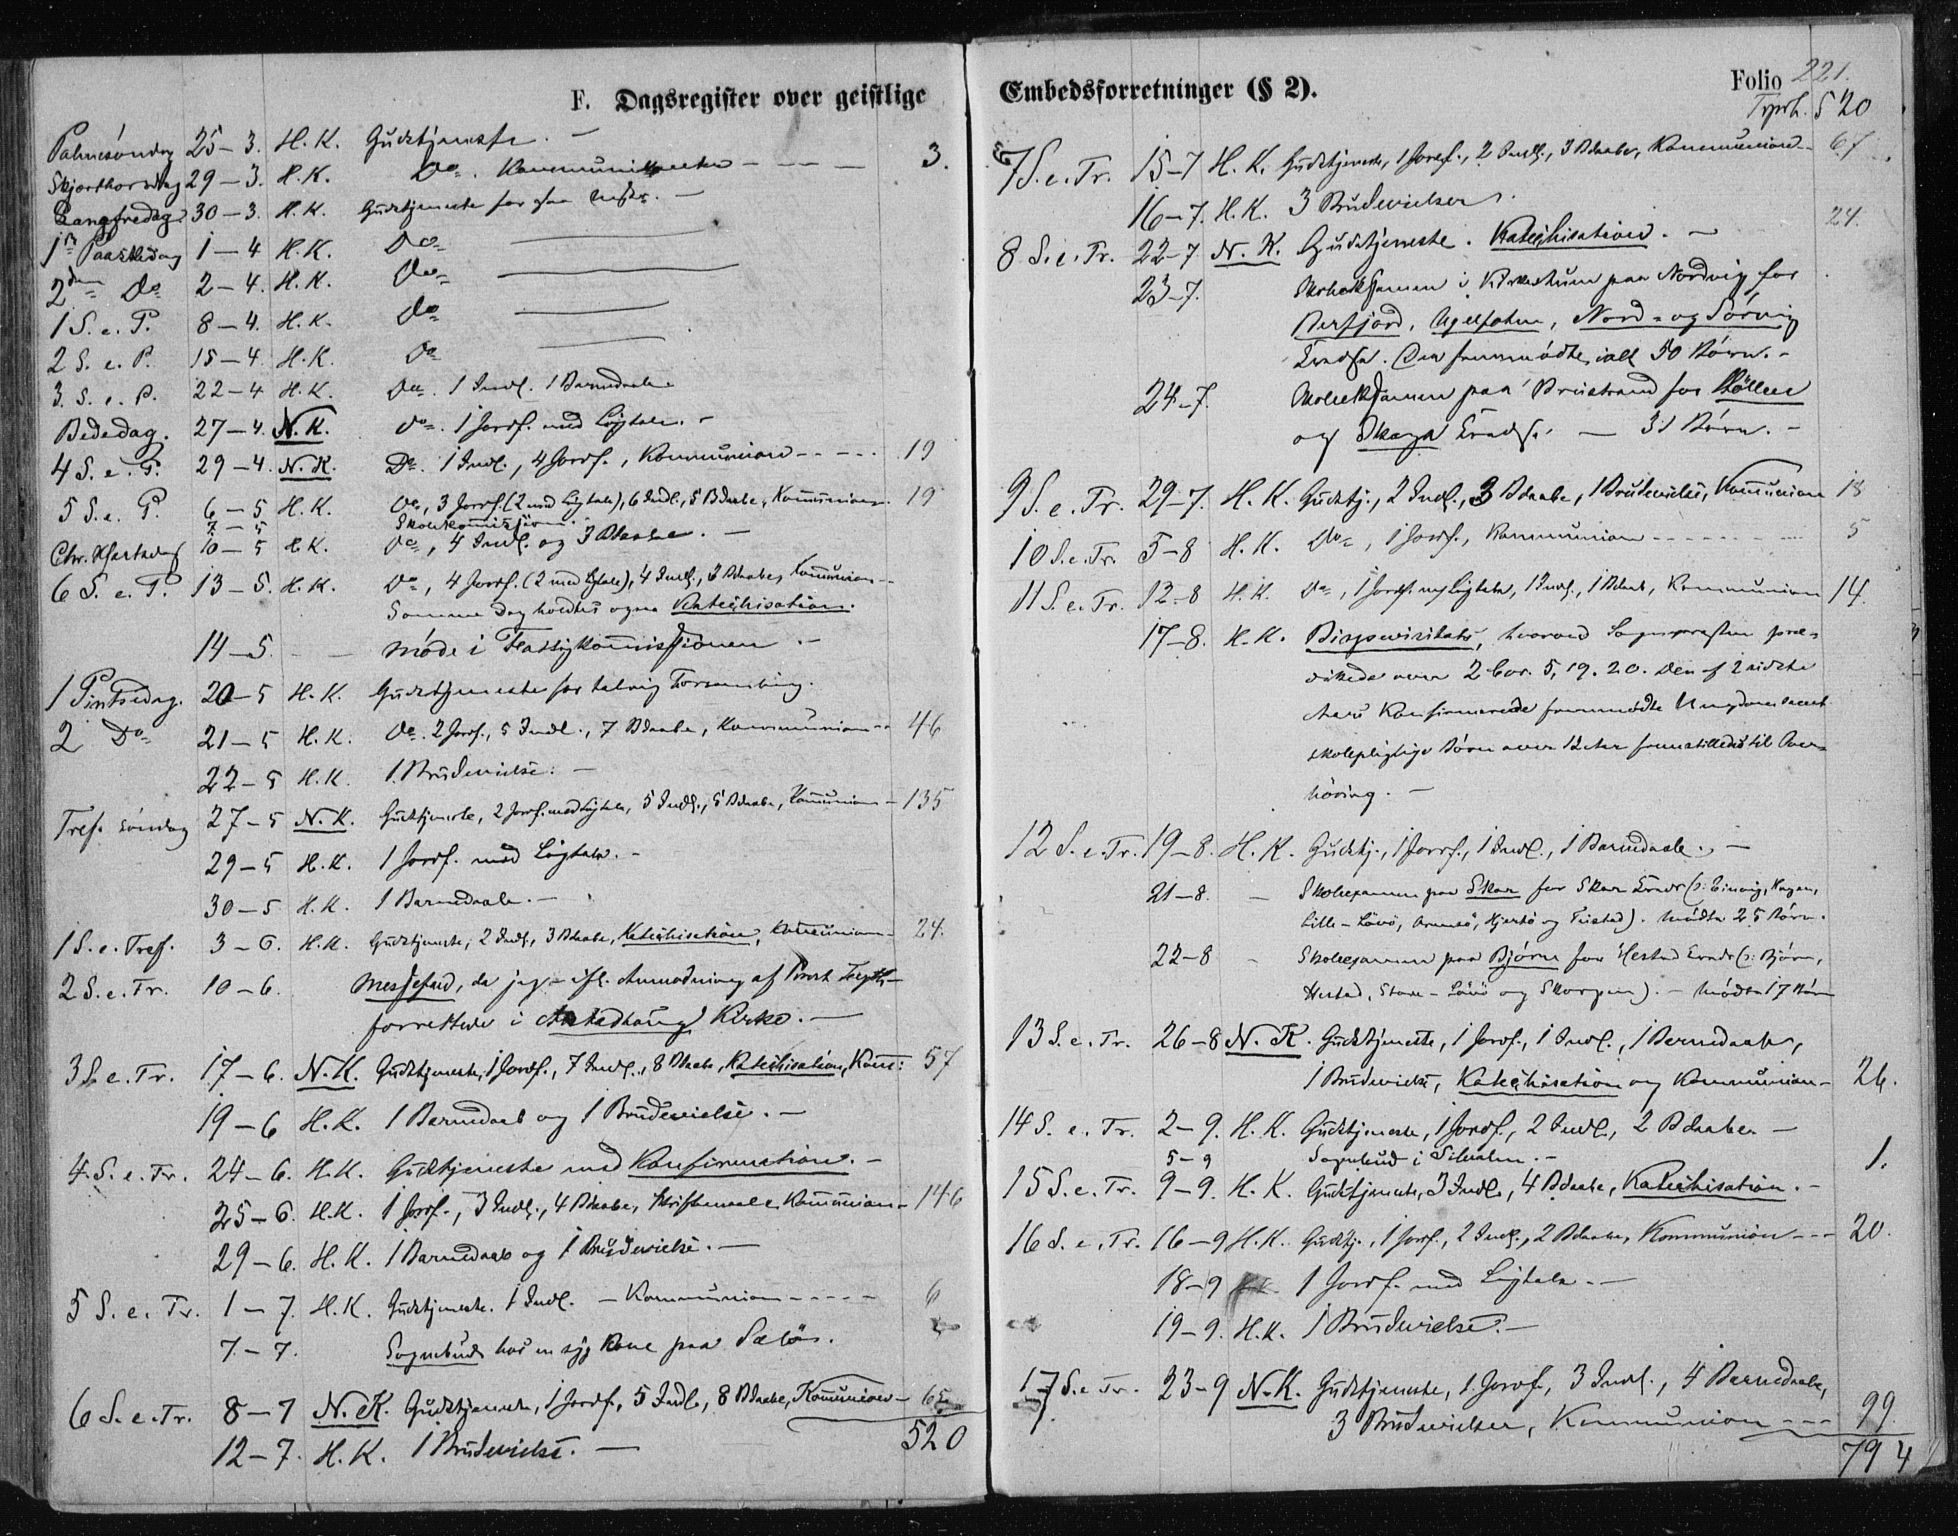 F. Dagsregister over geistlige
Palmesöndag 25-3. H. K. Gudstjeneste. —
Skjærthorsdag 29-3. H. K. Do. Kommunikanter - - - 3.
Langfredag 30-3. H. K. Gudstjeneste for faa —
1ste Paaskedag 1-4 H. K. Do
2den Do 2-4. H. K. Do
1 S. e. P. 8-4. H. K. Do
2 S. e. P. 15-4 H. K. Do
3. S. e. P. 22-4 H. K. Do. 1 Indl. 1 Barnedaab.
Bededag. 27-4. N. K. Do. 1 Jordf. med Ligtale. -
4 S. e. P. 29-4. N. K. Do. 1 Indl., 4 Jordf., Kommunion - - - - 19
5 S. e. P. 6-5 H. K. Do, 3 Jordf. (2 med Ligtale), 6 Indl., 5 Bdaabe, Kommunion - 19
7-5 Skolekommission.
Chr. Hfartsdag 10-5 H. K. Do, 4 Indl. og 3 Bdaabe. —
6 S. e. P. 13-5. H. K. Do, 4 Jordf. (2 med Ligtale), 4 Indl., 3 Bdaabe, Kommunion -
Samme Dag holdtes ogsaa Katechisation.
14-5. - — Möde i Fattigkommissionen. -
1 Pintsedag. 20-5 H. K. Gudstjeneste for talrig Forsamling.
2 Do 21-5 H. K. Do. 2 Jordf., 5 Indl., 7 Bdaabe, Kommunion - - 46
22-5 H. K. 1 Brudevielse. —
Tref. söndag 27-5 N. K. Gudstjeneste, 2 Jordf. med Ligtale, 5 Indl., 5 Bdaabe, Kommunion - 135
29-5 H. K. 1 Jordf. med Ligtale. -
30-5 H. K. 1 Barnedaab. -
1 S. e. Tref. 3-6. H. K. Gudstjeneste, 2 Indl., 3 Bdaabe, Katechisation, Kommunion - 24.
2 S. e. Tr. 10-6. Messefald, da jeg - efter Anmodning af Provst
forrettede i Alstadhoug Kirke. —
3 S. e. Tr. 17-6. N. K. Gudstjeneste, 1 Jordf., 7 Indl., 8 Bdaabe, Katechisation, Kom: 57
19-6 H. K. 1 Barnedaab og 1 Brudevielse. —
4. S. e. Tr. 24-6. H. K. Gudstjeneste med Konfirmation. -
25-6. H. K. 1 Jordf., 3 Indl., 4 Bdaabe, Skriftemaal, Kommunion - 146
29-6. H. K. 1 Barnedaab og 1 Brudevielse. —
5 S. e. Tr. 1-7. H. K. Gudstjeneste. 1 Indl. - Kommunion - - - - - 6
7-7. Sognebud hos en syg Kone paa
6 S. e. Tr. 8-7 N. K. Gudstjeneste, 1 Jordf., 5 Indl., 8 Bdaabe, Kommunion - 65
520
12-7. H. K. 1 Brudevielse. —
Embedsforretninger (§ 2).
Folio 221.
Trprt. 520
7 S. e. Tr. 15-7 H. K. Gudstjeneste, 1 Jordf., 2 Indl., 3 Bdaabe, Kommunion - 67
16-7. H. K. 3 Brudevielser.
8 S. e. Tr. 22-7 N. K. Gudstjeneste. Katechisation. — 24.
23-7. Skoleexamen i paa Nordvig for
Nord- og Sörvig
Kredse. Der fremmödte ialt 50 Börn. -
24-7. Skoleexamen paa for
og Skaga Kredse. — 31 Börn. -
9 S. e. Tr. 29-7. H. K. Gudstj., 2 Indl., 3 Bdaabe, 1 Brudevielse, Kommunion 18
10 S. e. Tr. 5-8 H. K. Do, 1 Jordf., Kommunion - - - - - - - - 5
11 S. e. Tr. 12-8 H. K. Do, 1 Jordf. og Ligtale, 1 Indl., 1 Bdaab, Kommunion 14.
17-8. H. K. Bispevisitats, hvorved Sognepresten præ-
dikede over 2 Cor. 5, 19. 20. Den af 2 sidste
Aars Konfirmerede fremmödte Ungdom samt
skolepligtige Börn over 12 Aar fremstilledes til Over-
höring. —
12 S. e. Tr. 19-8. H. K. Gudstj., 1 Jordf., 1 Indl., 1 Barnedaab. —
21-8. — Skoleexamen paa Skar for Skar Kreds (o: Einvig, Hagen,
Lille-Lövö, Hjertö og Tristad). Mödte 25 Börn.
22-8 - Skoleexamen paa Bjørn for Hestad Kreds (o: Bjørn,
Hestad, Store-Lövö og Skorpen). — Mödte 17 Börn
13 S. e. Tr. 26-8 N. K. Gudstjeneste, 1 Jordf., 1 Indl., 1 Barnedaab,
1 Brudevielse, Katechisation og Kommunion - 26.
14 S. e. Tr. 2-9. H. K. Gudstjeneste, 1 Jordf., 2 Indl., 2 Bdaabe. —
5-9 Sognebud i . - 1.
15 S. e. Tr. 9-9. H. K. Gudstjeneste, 3 Indl., 4 Bdaabe, Katechisation. -
16 S. e. Tr. 16-9 H. K. Gudstj., 1 Jordf., 2 Indl., 2 Bdaabe, Kommunion - - - 20.
18-9 H. K. 1 Jordf. med Ligtale. —
19-9. H. K. 1 Brudevielse. —
17 S. e. Tr. 23-9 N. K. Gudstjeneste, 1 Jordf., 3 Indl., 4 Barnedaab,
3 Brudevielser, Kommunion - - - 99.
794